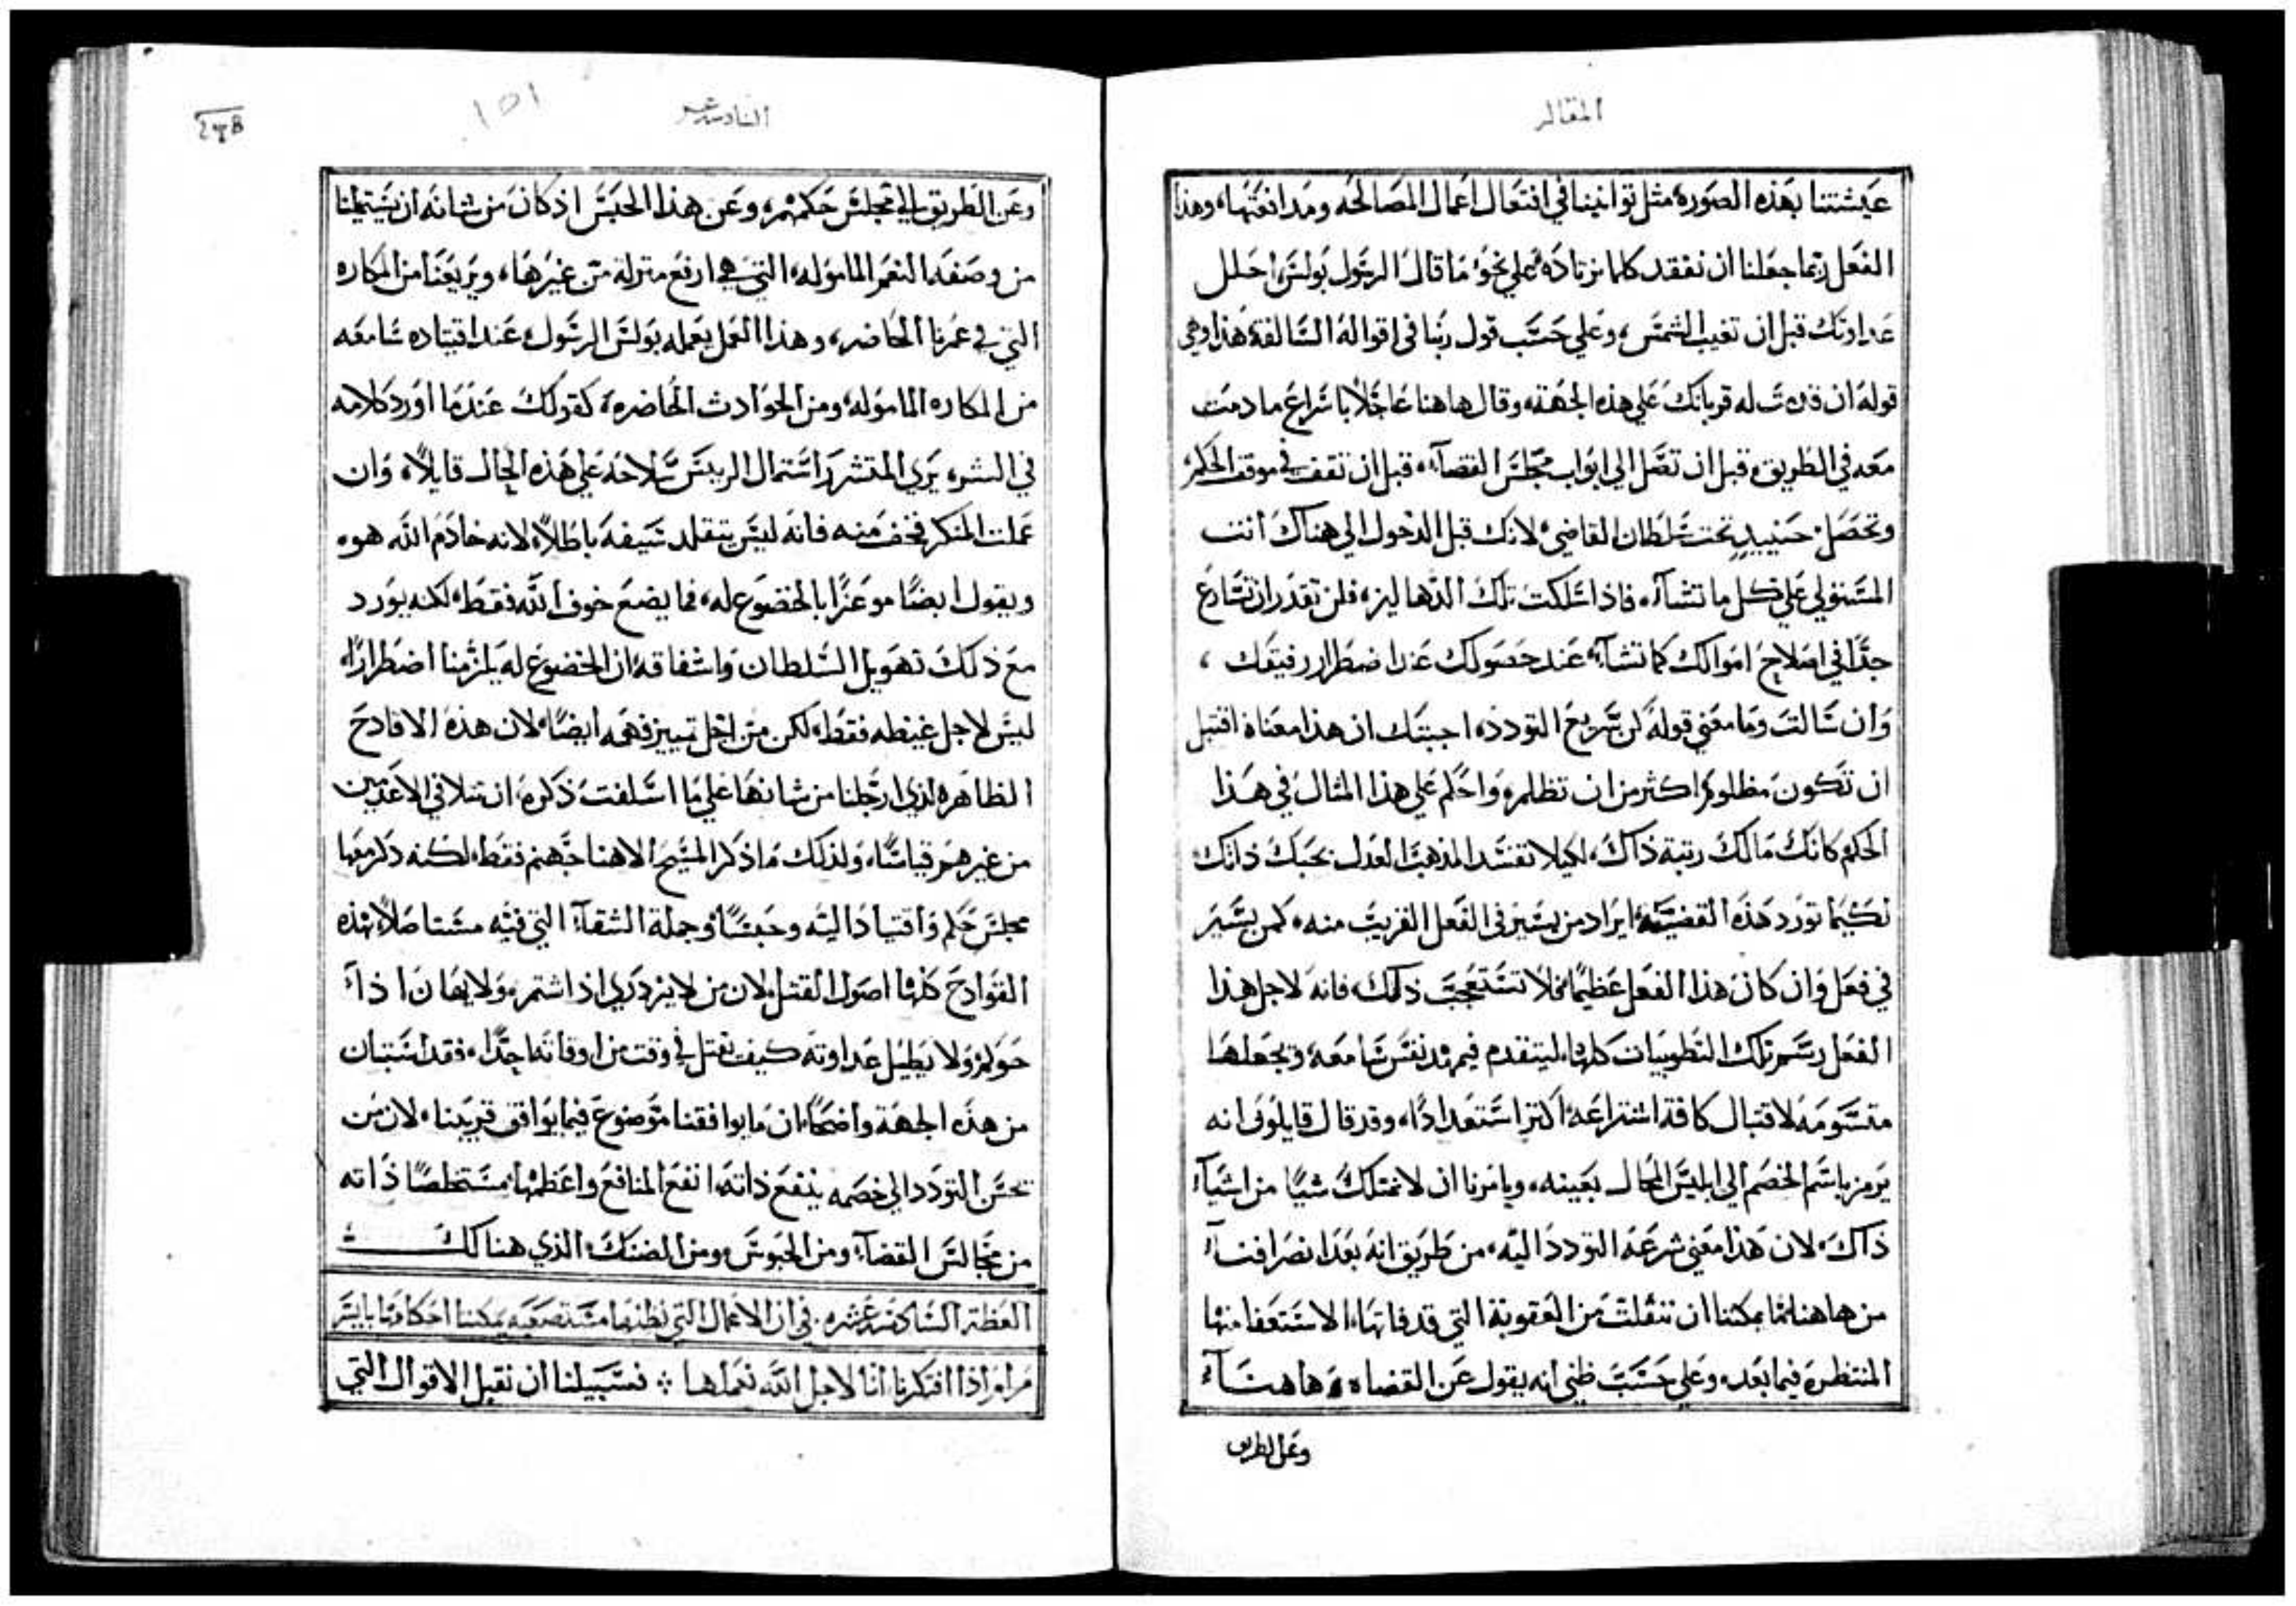 المقاله
عيشتنا بهذه الصوره مثل توانينا في افتعال اعمال المصالحه ومدافعتها، وهذا
الفعل ربما جعلنا ان نفقد كلما نرتاده على نحو ما قال الرسول بولس احلل
عداوتك قبل ان تغيب الشمس، وعلي حسب قول ربنا في اقواله السالفه هذا وهي
قوله ان قربت له قربانك علي هذه الجهه، وقال هاهنا عاجلاً باسراع ما دمت
معه في الطريق، قبل ان تصل الي ابواب مجلس القضآء، قبل ان تقف في موقف الحكم
وتحصل حينيدٍ تحت سلطان القاضي، لانك قبل الدخول الي هناك انت
المستولي علي كل ما تشآء، فاذا سلكت تلك الدهاليز، فلن تقدر ان تسارع
جدًا في اصلاح اموالك كما تشآء، عند حصولك عند اضطرار رفيقك،
وان سالت وما معني قوله كن سريع التودد، اجبتك ان هذا معناه اقتبل
ان تكون مظلومًا اكثر من ان تظلم، واحكم علي هذا المثال في هذا
الحكم كانك مالك رتبة ذاك، لكيلا تفسد المذهب العدل بحبك ذاتك
لكيما تورد هذه القضيه ايراد من يسير في الفعل الغريب منه، كمن يسير
في فعل وان كان هذا الفعل عظيمًا فلا تستعجب ذلك، فانه لاجل هذا
الفعل رسم تلك التطويبات كلها، ليتقدم فيمهد نفس سامعه، ويجعلها
متسومه لاقتبال كافة اشتراعه اكثر استعدادًا، وقد قال قايلون انه
يرمز باسم الخصم الي ابليس المحال بعينه، ويامرنا ان لا نمتلك شيًا من اشيآء
ذاك، لان هذا معني شرعه التودد اليه، من طريق انه بعد انصرافنا
من هاهنا لما يمكننا ان ننفلت من العقوبة التي قد فاتها، الاستعفا منها
المنتظره فيما بعد، وعلي حسب ظني انه يقول عن القضاه هاهنا
وعن الطريق
السادسه عشر
١٥١
وعن الطريق الي مجلس حكمهم، وعن هذا الحبس اذ كان من شانه ان يستميلنا
من وصفه النعم الماموله، التي هي ارفع منزلة من غيرها، ويريعنا من المكاره
التي في عمرنا الحاضر، وهذا العمل يعمله بولس الرسول، عند اقتياده سامعه
من المكاره الماموله، ومن الحوادث الحاضره، كقولك عندما اورد كلامه
في الشره يري المتشرر اشتمال الريس سلاحه علي هذه الحال قايلاً، وان
عملت المنكر فخف منه فانه ليس يتقلد سيفه باطلاً، لانه خادم الله هو،
ويقول ايضًا موعزًا بالخضوع له، فما يضع خوف الله فقط، لكنه يورد
مع ذلك تهويل السلطان واشفاقه، ان الخضوع له يلزمنا اضطرارًا،
ليس لاجل غيظه فقط، لكن من اجل تمييز فهمه ايضًا، لان هذه الافادح
الظاهره لذي ارجلنا من شانها علي ما اسلفت ذكره، ان تتلافي الاعدمين
من غيرهم قياسًا، ولذلك ما ذكر المسيح الاهنا جهنم فقط، لكنه ذكر معها
مجلس حكم واقتيادًا اليه وحبسًا، وجملة الشقآء التي فيه مستاصلاً بهذه
الفوادح كلها اصول القتل، لان من لا يزدري اذا شتم، ولا يهان اذا
حوكم، ولا يطيل عداوته كيف يقتل في وقت من اوقاته احدًا، فقد استبان
من هذه الجهة واضحًا، ان ما يوافقنا موضوع فيما يوافق قريبنا، لان من
يحسن التودد الي خصمه ينفع ذاته، انفع المنافع واعظمها، مستخلصًا ذاته
من مجالس القضآء، ومن الحبوس، ومن الضنك، الذي هنالك
العظة السادسه عشره، في ان الاعمال التي نظنها مستصعبه يمكننا احكامها بايسر
مرام اذا افتكرنا اننا لاجل الله نعملها ⁘ فسبيلنا ان نقبل الاقوال التي